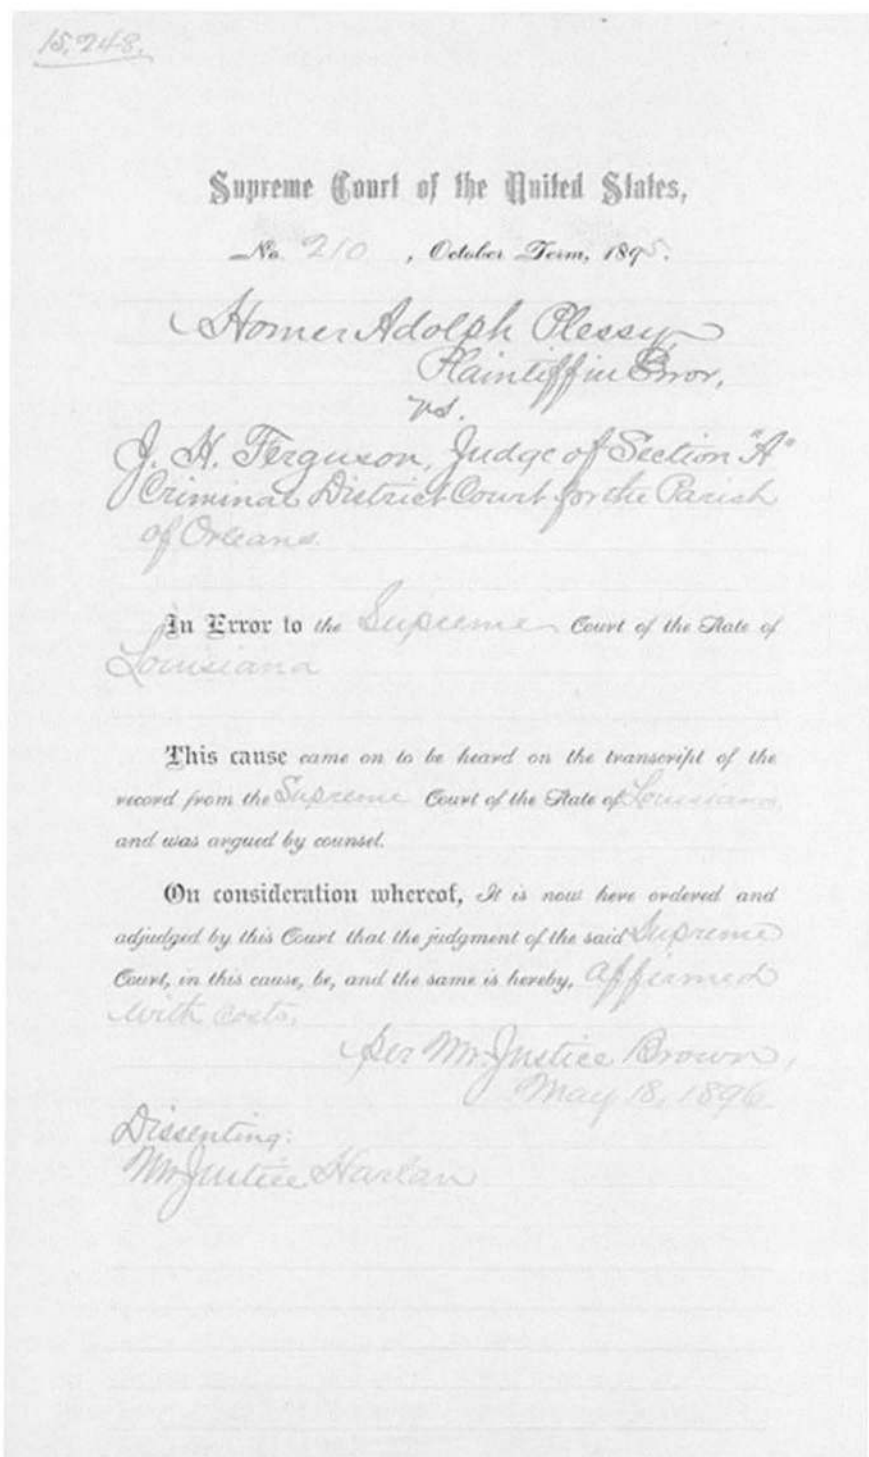 15,248.
Supreme Court of the United States,
No. 210, October Term, 1895.
Homer Adolph Plessy
Plaintiff in Error,
vs.
J. H. Ferguson, Judge of Section "A"
Criminal District Court for the Parish
of Orleans.
In Error to the Supreme Court of the State of
Louisiana
This cause came on to be heard on the transcript of the
record from the Supreme Court of the State of Louisiana,
and was argued by counsel.
On consideration whereof, It is now here ordered and
adjudged by this Court that the judgment of the said Supreme
Court, in this cause, be, and the same is hereby, affirmed
with costs.
per Mr. Justice Brown,
May 18, 1896
Dissenting:
Mr Justice Harlan